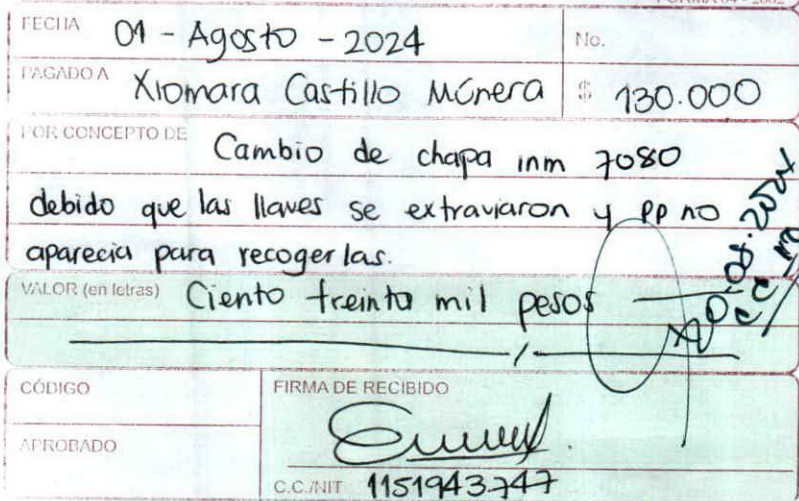 FORMA 04 - 2002
FECHA 01 - Agosto - 2024 No.
PAGADO A Xiomara Castillo Múnera $ 130.000
POR CONCEPTO DE Cambio de chapa inm 7080
debido que las llaves se extraviaron y PP no
aparecia para recogerlas.
VALOR (en letras) Ciento treinta mil pesos
CÓDIGO
FIRMA DE RECIBIDO
APROBADO
C.C./NIT 1151943.747